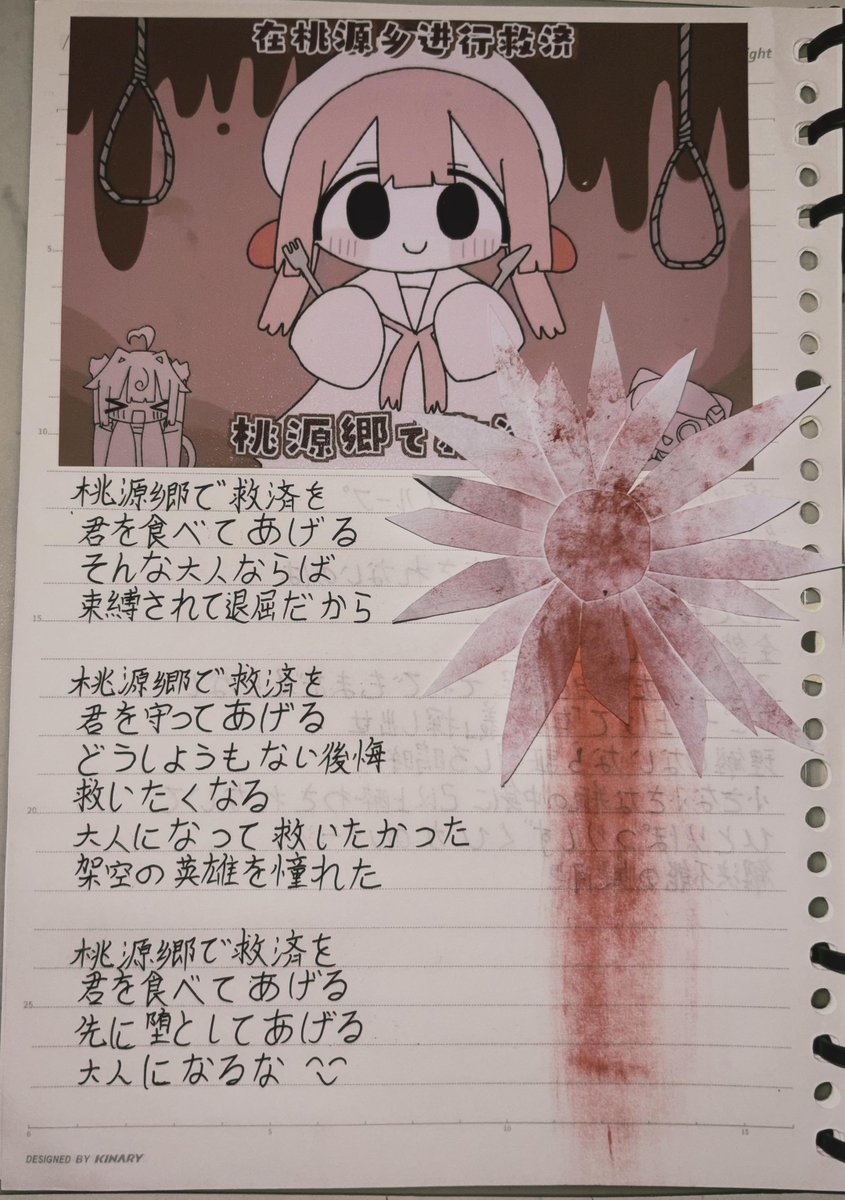 在桃源乡进行救济
ght
桃源郷で
桃源郷で救済を
君を食べてあげる
そんな大人ならば
束縛されて退屈だから
桃源郷で救済を
君を守ってあげる
どうしようもない後悔
救いたくなる
大人になって救いたかった
架空の英雄を憧れた
桃源郷で救済を
君を食べてあげる
先に堕としてあげる
大人になるな
5
10
15
20
25
0
5
10
15
DESIGNED BY KINARY